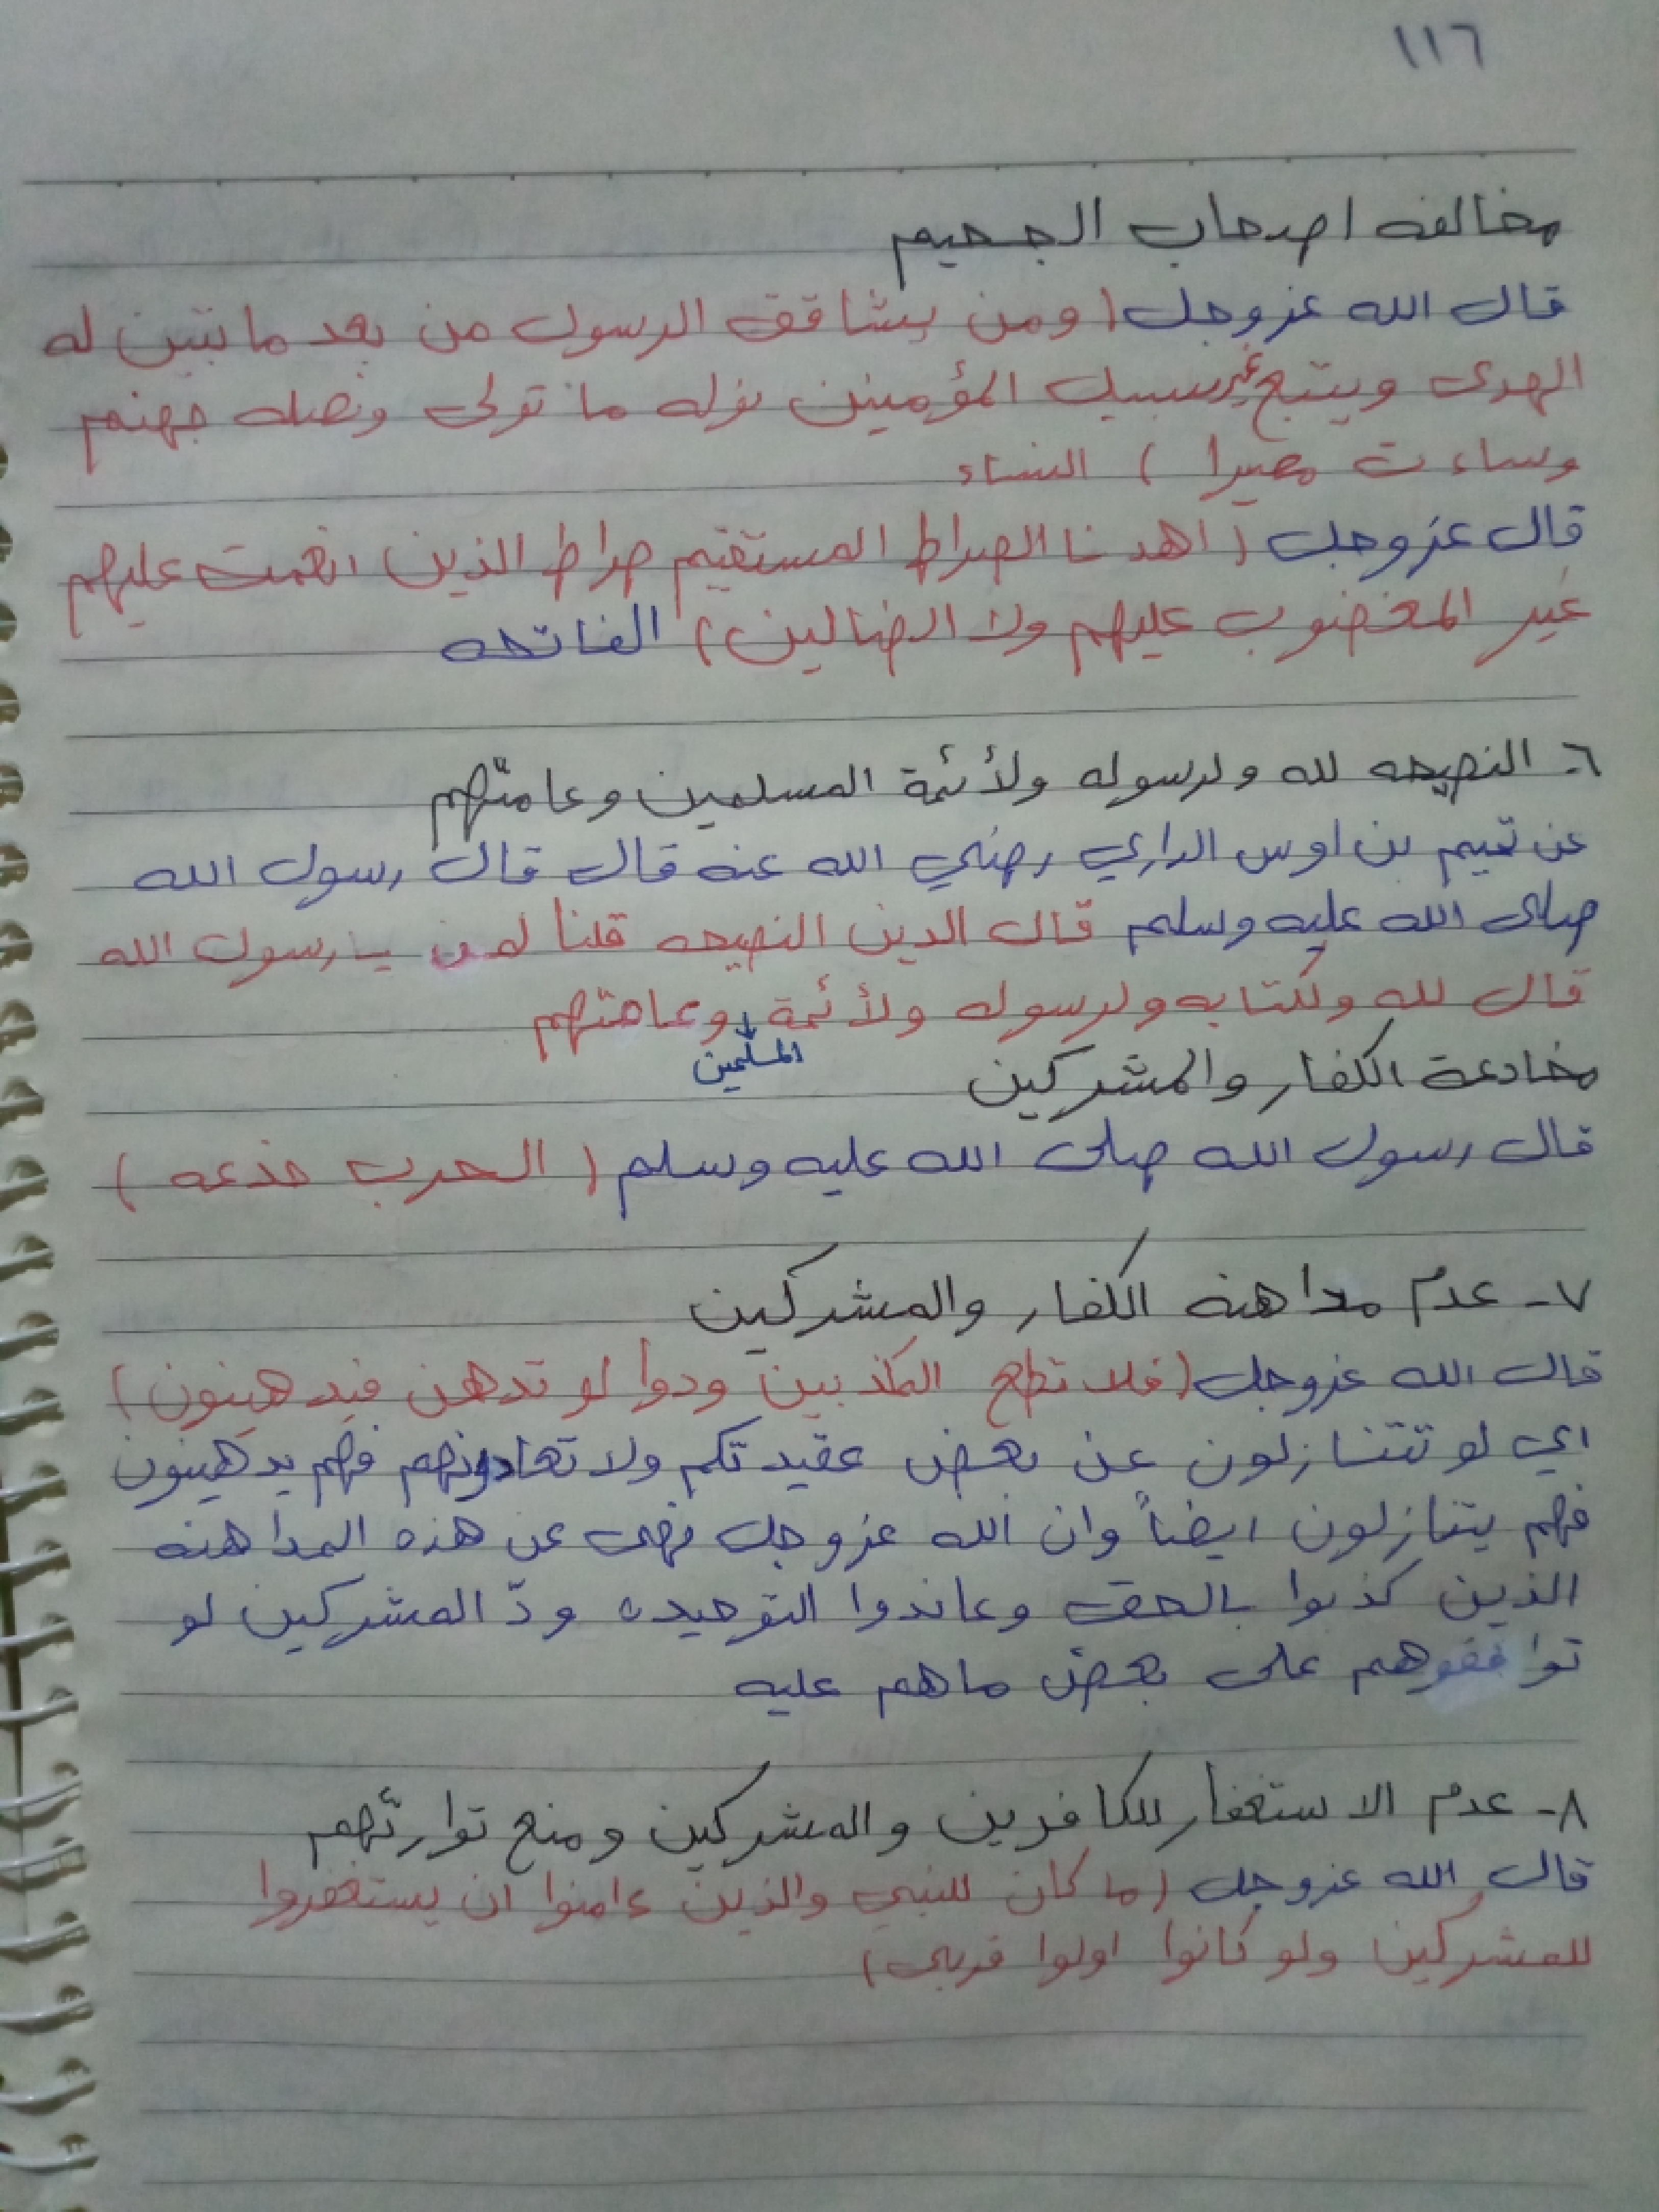 ١١٦
مخالفه اصحاب الجحيم
قال الله عزوجل (ومن يشاقق الرسول من بعد ما تبين له
الهدى ويتبع غير سبيل المؤمنين نوله ما تولى ونصله جهنم
وساءت مصيرا ) النساء
قال عزوجل (اهدنا الصراط المستقيم صراط الذين انعمت عليهم
غير المغضوب عليهم ولا الضالين) الفاتحه
٦- النصيحه لله ولرسوله ولأئمة المسلمين وعامتهم
عن تميم بن اوس الداري رضي الله عنه قال قال رسول الله
صلى الله عليه وسلم قال الدين النصيحه قلنا لمن يا رسول الله
قال لله ولكتابه ولرسوله ولأئمة وعامتهم
المسلمين
مخادعة الكفار والمشركين
قال رسول الله صلى الله عليه وسلم ( الحرب خدعه )
٧- عدم مداهنه الكفار والمشركين
قال الله عزوجل (فلا تطع المكذبين ودوا لو تدهن فيدهنون)
اي لو تتنازلون عن بعض عقيدتكم ولا تعادونهم فهم يدهنون
فهم يتنازلون ايضاً وان الله عزوجل نهى عن هذه المداهنه
الذين كذبوا بالحق وعاندوا التوحيد، ودّ المشركين لو
توافقوهم على بعض ماهم عليه
٨- عدم الاستغفار للكافرين والمشركين ومنع توارثهم
قال الله عزوجل (ما كان للنبي والذين ءامنوا ان يستغفروا
للمشركين ولو كانوا اولوا قربى)